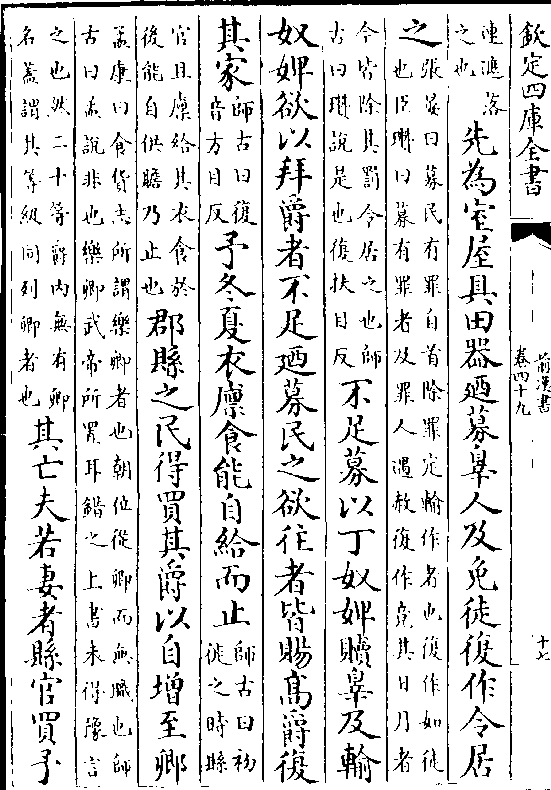 欽定四庫全書
前漢書
卷四十九
十七
連遮落
之也
先為室屋具田器廼募辠人及免徒復作令居
之
張晏曰募民有罪自首除罪定輸作者也復作如徒
也臣瓚曰募有罪者及罪人遇赦復作竟其日月者
今皆除其罰令居之也師
古曰瓚說是也復扶目反
不足募以丁奴婢贖辠及輸
奴婢欲以拜爵者不足廼募民之欲往者皆賜髙爵復
其家
師古曰復
音方目反
予冬夏衣廩食能自給而止
師古曰初
徙之時縣
官且廩給其衣食於
後能自供贍乃止也
郡縣之民得買其爵以自增至卿
孟康曰食貨志所謂樂卿者也朝位從卿而無職也師
古曰孟說非也樂卿武帝所置耳錯之上書未得豫言
之也然二十等爵内無有卿
名蓋謂其等級同列卿者也
其亡夫若妻者縣官買予